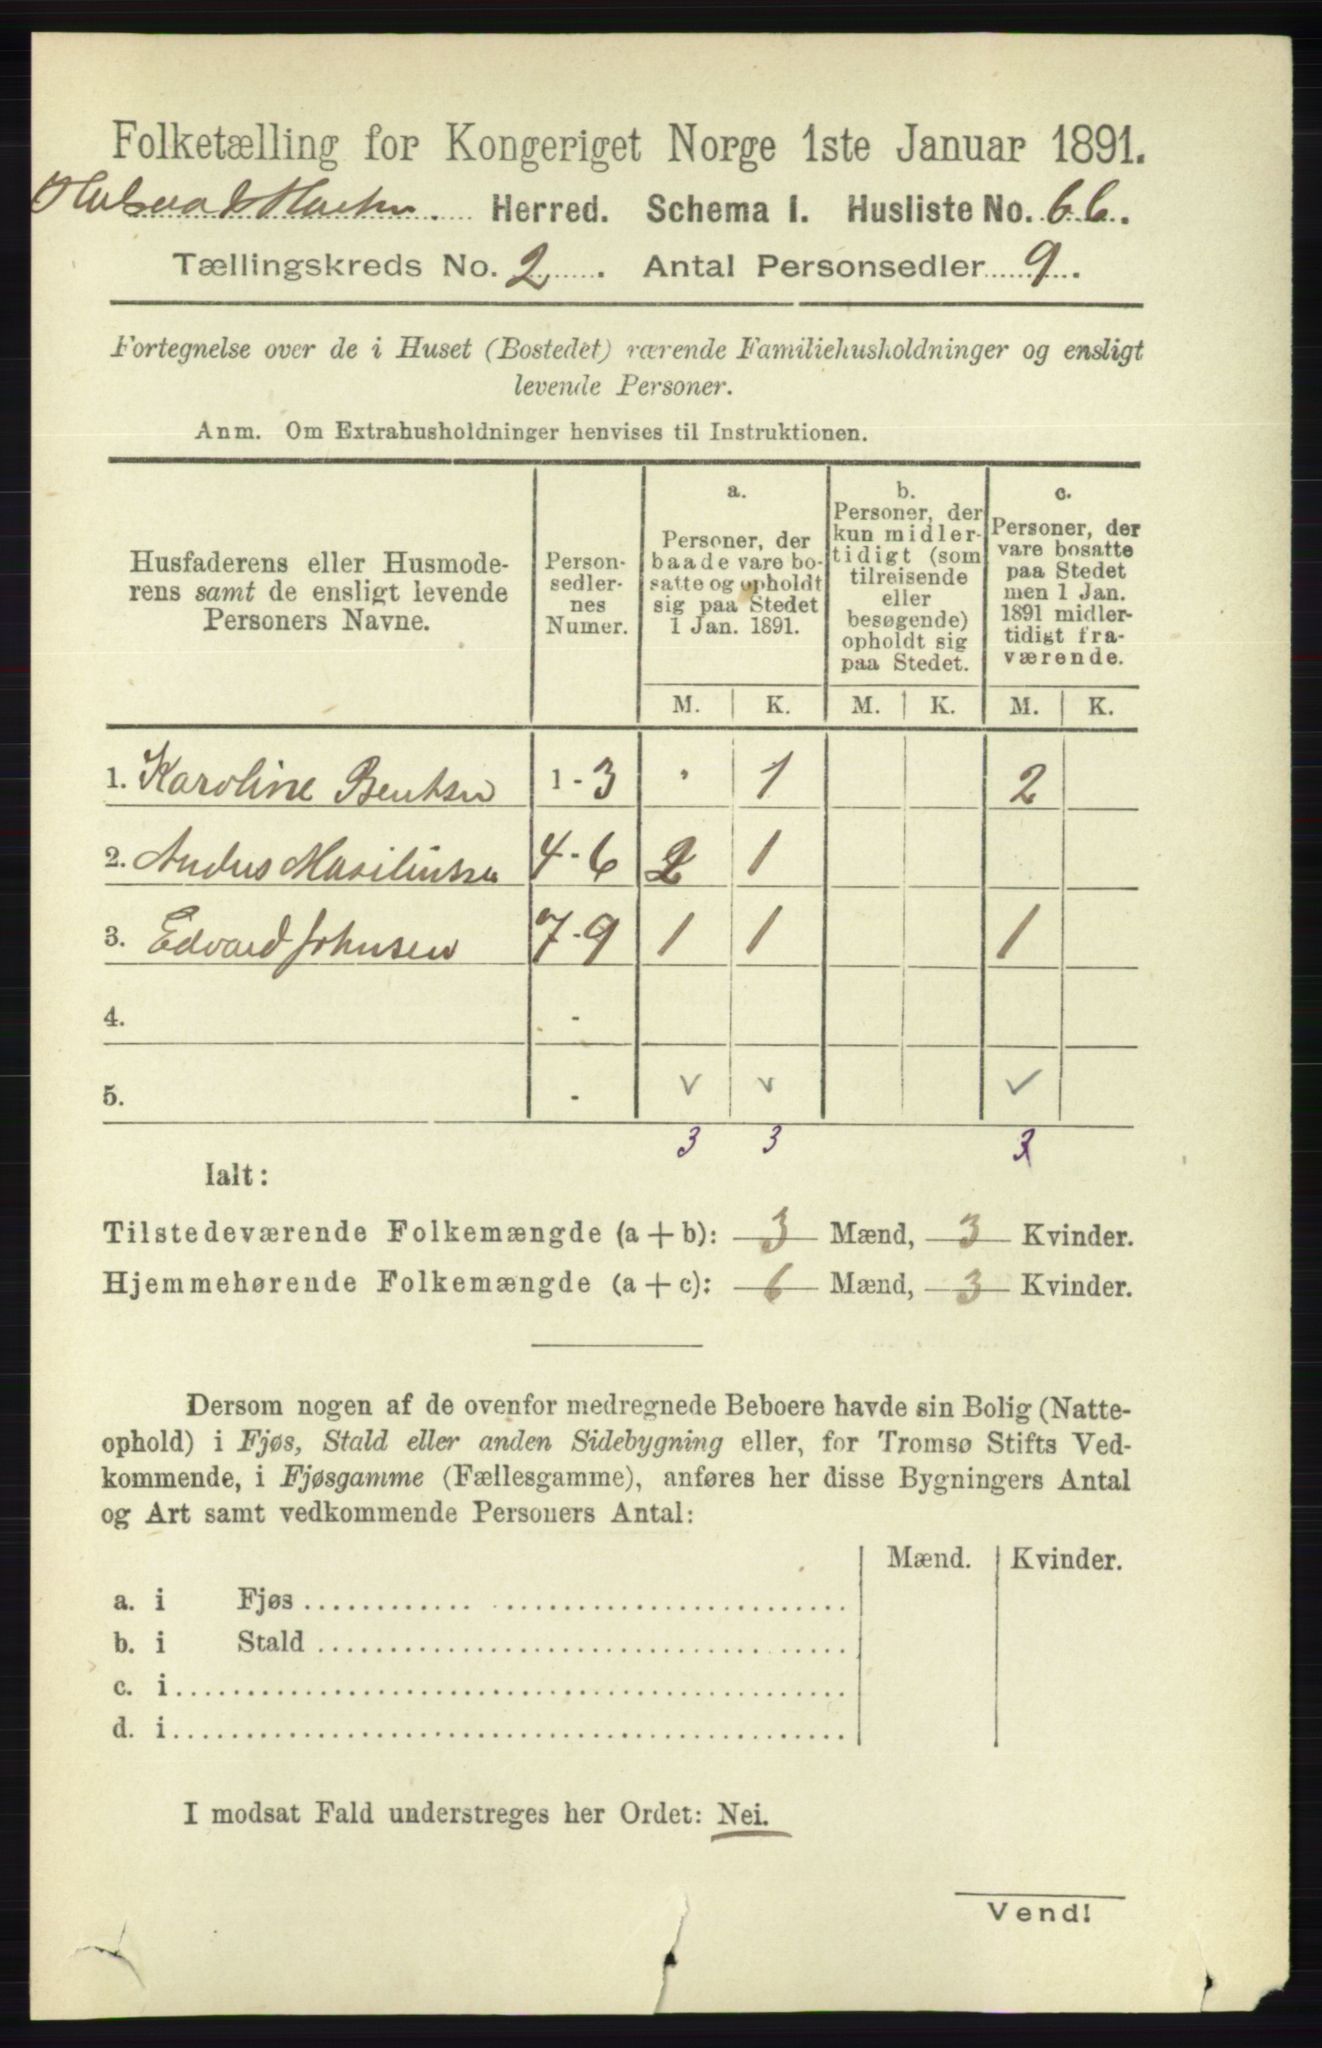 Folketælling for Kongeriget Norge 1ste Januar 1891.
Herred. Schema I. Husliste No. 66.
Tællingskreds No. 2. Antal Personsedler 9.
Fortegnelse over de i Huset (Bostedet) værende Familiehusholdninger og ensligt
levende Personer.
Anm. Om Extrahusholdninger henvises til Instruktionen.
Husfaderens eller Husmode-
rens samt de ensligt levende
Personers Navne.
Person-
sedler-
nes
Numer.
a.
Personer, der
baade vare bo-
satte og opholdt
sig paa Stedet
1 Jan. 1891.
b.
Personer, der
kun midler-
tidigt (som
tilreisende
eller
besøgende)
opholdt sig
paa Stedet.
c.
Personer, der
vare bosatte
paa Stedet
men 1 Jan.
1891 midler-
tidigt fra-
værende.
M. K. M. K. M. K.
1. Karoline Bentsen 1-3 1 2
2. 4-6 2 1
3. Edvard Johnsen 7-9 1 1 1
4. -
5. - ✓ ✓ ✓
3 3 3
Ialt:
Tilstedeværende Folkemængde (a+b): 3 Mænd, 3 Kvinder.
Hjemmehørende Folkemængde (a+c): 6 Mænd, 3 Kvinder.
Dersom nogen af de ovenfor medregnede Beboere havde sin Bolig (Natte-
ophold) i Fjøs, Stald eller anden Sidebygning eller, for Tromsø Stifts Ved-
kommende, i Fjøsgamme (Fællesgamme), anføres her disse Bygningers Antal
og Art samt vedkommende Personers Antal:
Mænd. Kvinder.
a. i Fjøs
b. i Stald
c. i
d. i
I modsat Fald understreges her Ordet: Nei.
Vend!